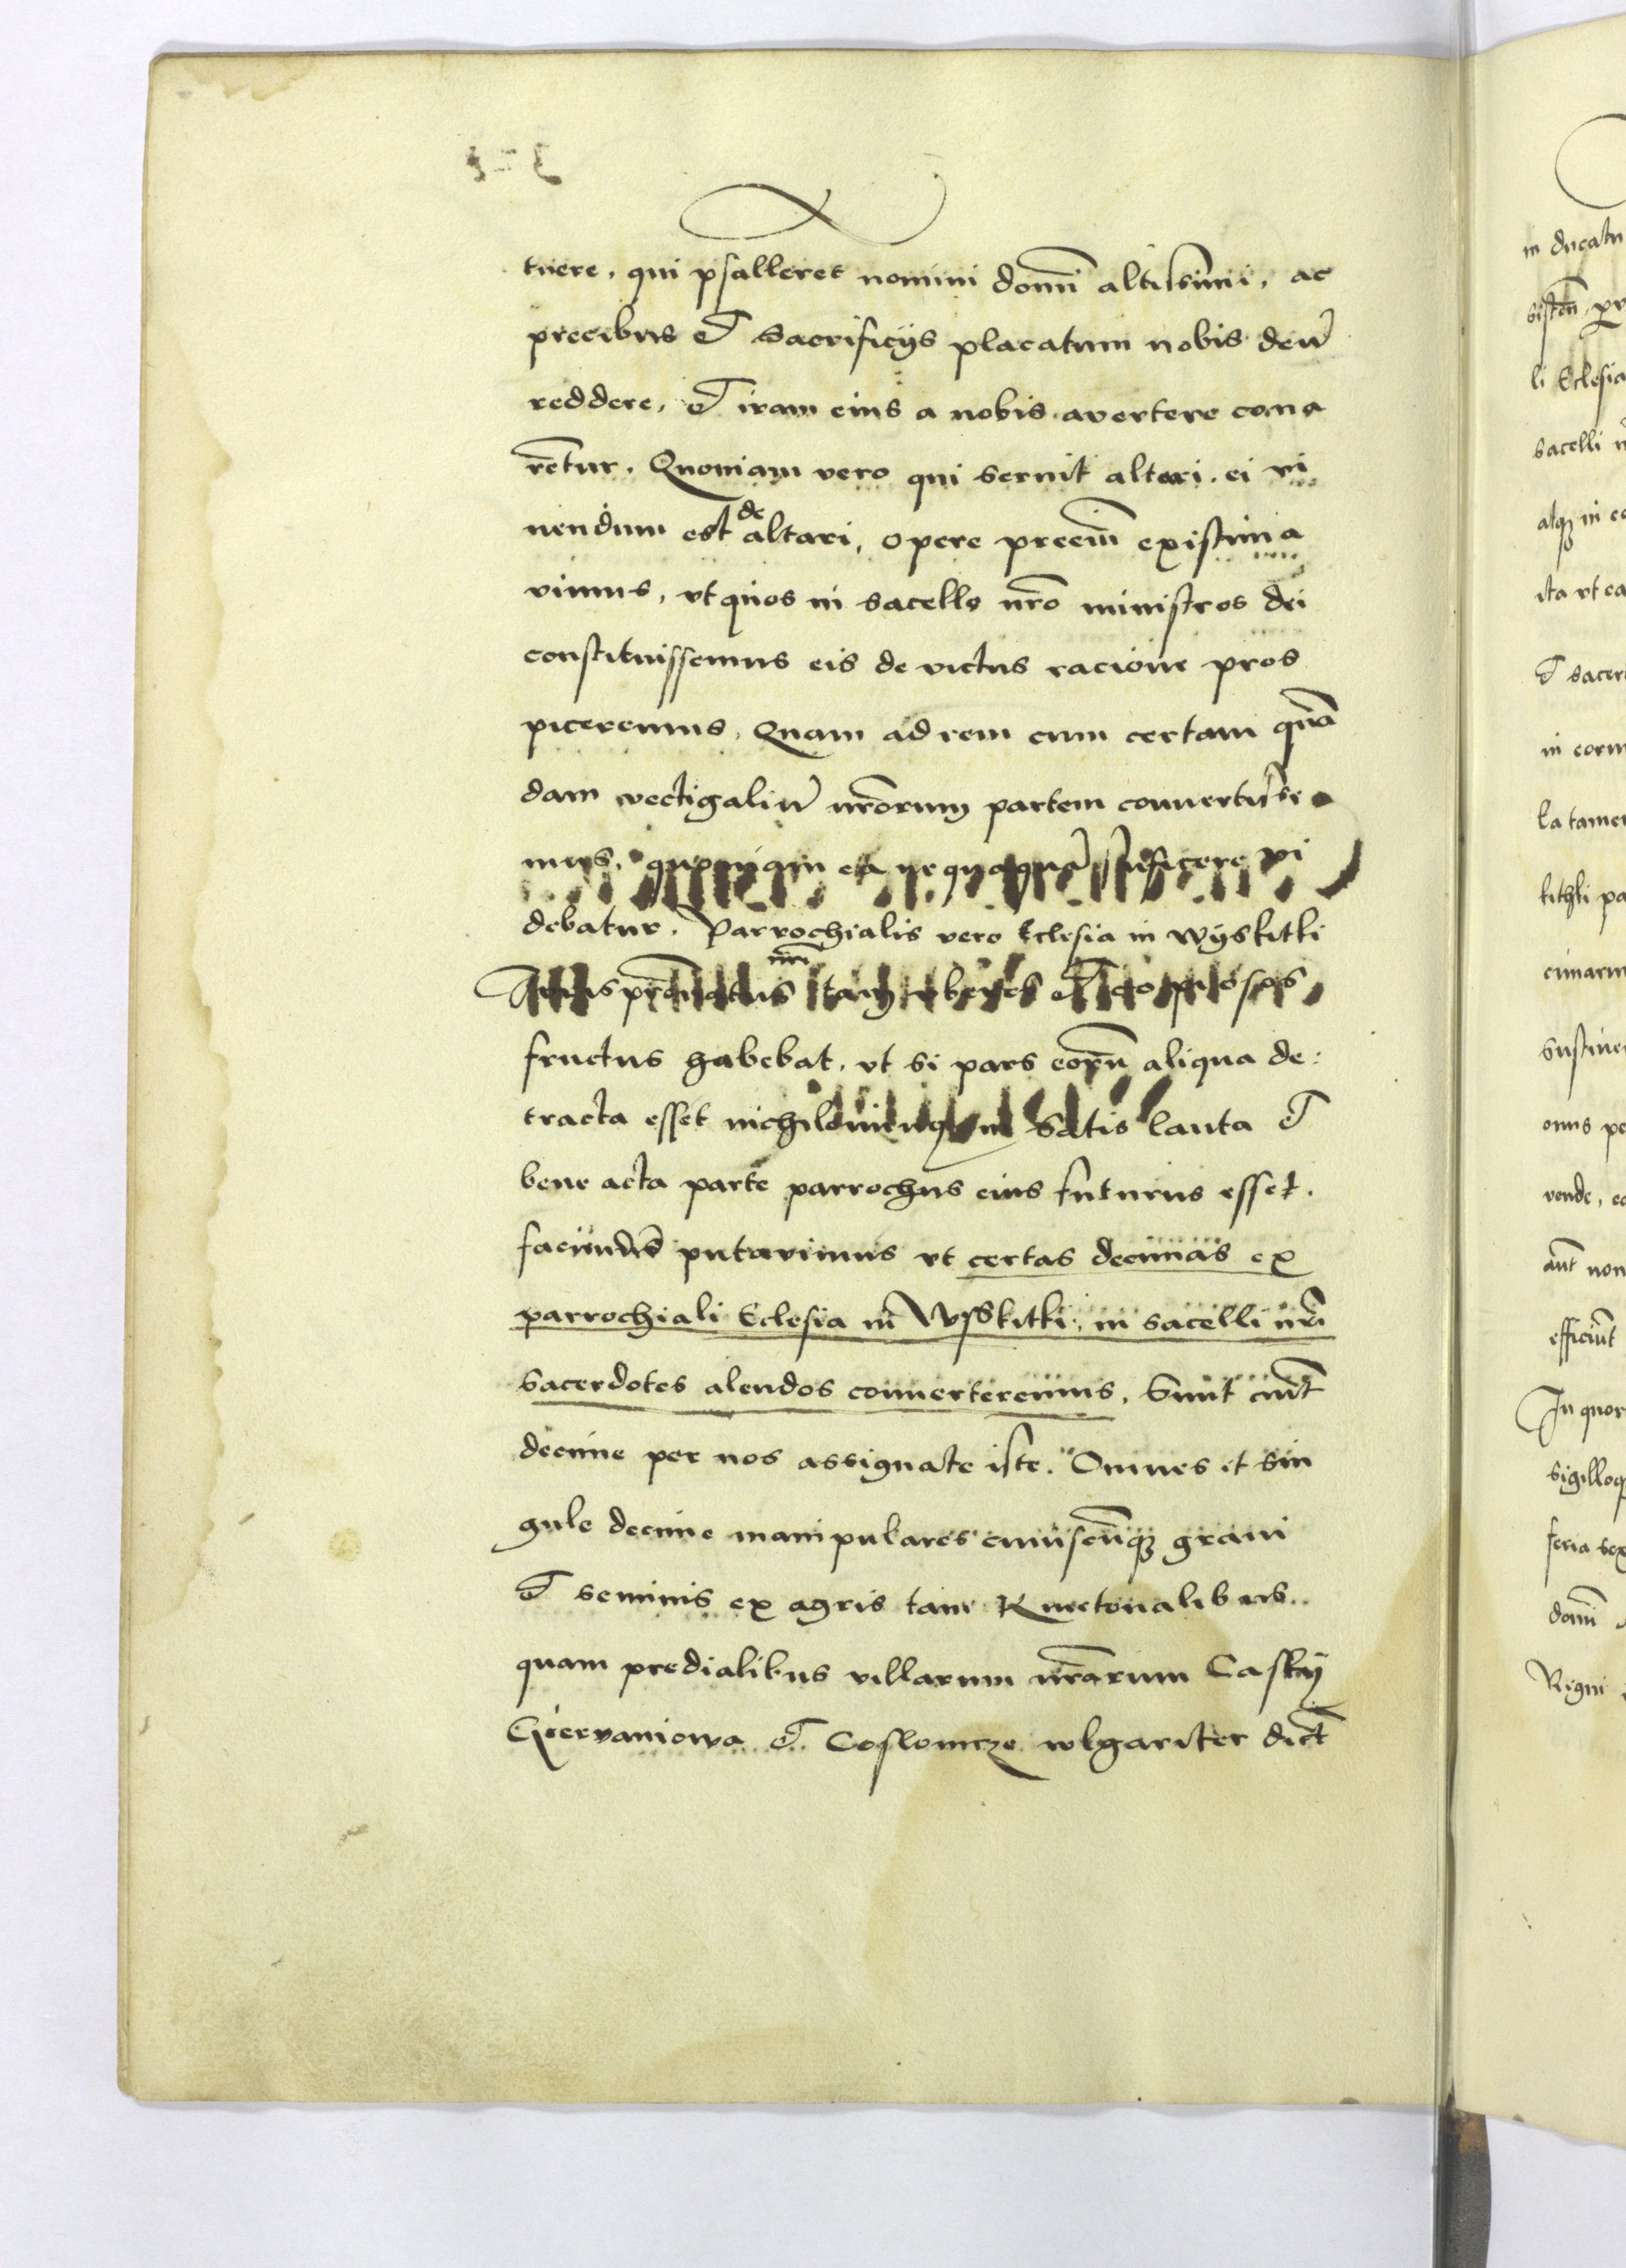 tuere, qui psalleret nomini domi͞ altissimi, ac
precibus et sacrificijs placatum nobis deu͞
reddere, et iram eius a nobis avertere cona
re͞tur. Quoniam vero qui seruit altari, ei vi
uendum est de altari, opere preciu͞ existima
vimus, vt quos in sacello nr͞o ministros dei
constituissemus eis de victus racione pros
piceremus, Quam ad rem cum certam qua͞
dam vectigaliu͞ nr͞orum partem conuertisse
mus, quoniam ea nequaqua͞ sufficere vi
debatur. Parrochialis vero Eclesia in Wyskitki
Iuris pr͞onatus nr͞i tam vberes et copiosos
fructus habebat, vt si pars eoru͞ aliqua de:
tracta esset nichilominus satis lauta et
bene acta parte parrochus eius futurus esset.
faciund putavimus vt certas decimas ex
parrochiali Eclesia in Wyskitki, in sacelli nr͞i
sacerdotes alendos conuerteremus, Sunt aut͞
decime per nos assignate iste. Omnes et sin
gule decime manipulares cuiuscu͞q grani
et seminis ex agris tam Kmetonalibus
quam predialibus villarum nr͞arum Casky
Gyervaniowa et Coslomcze wlgariter dict͞
in ducatu
li Eclesia
sacelli
atq in
ita vt ea
et sacer
in eorum
la tamen
kitki pa
cimarum
sustine
onus pe
aut͞ non
efficiu͞t
In quor
sigilloq
feria sex
domi͞
Regni